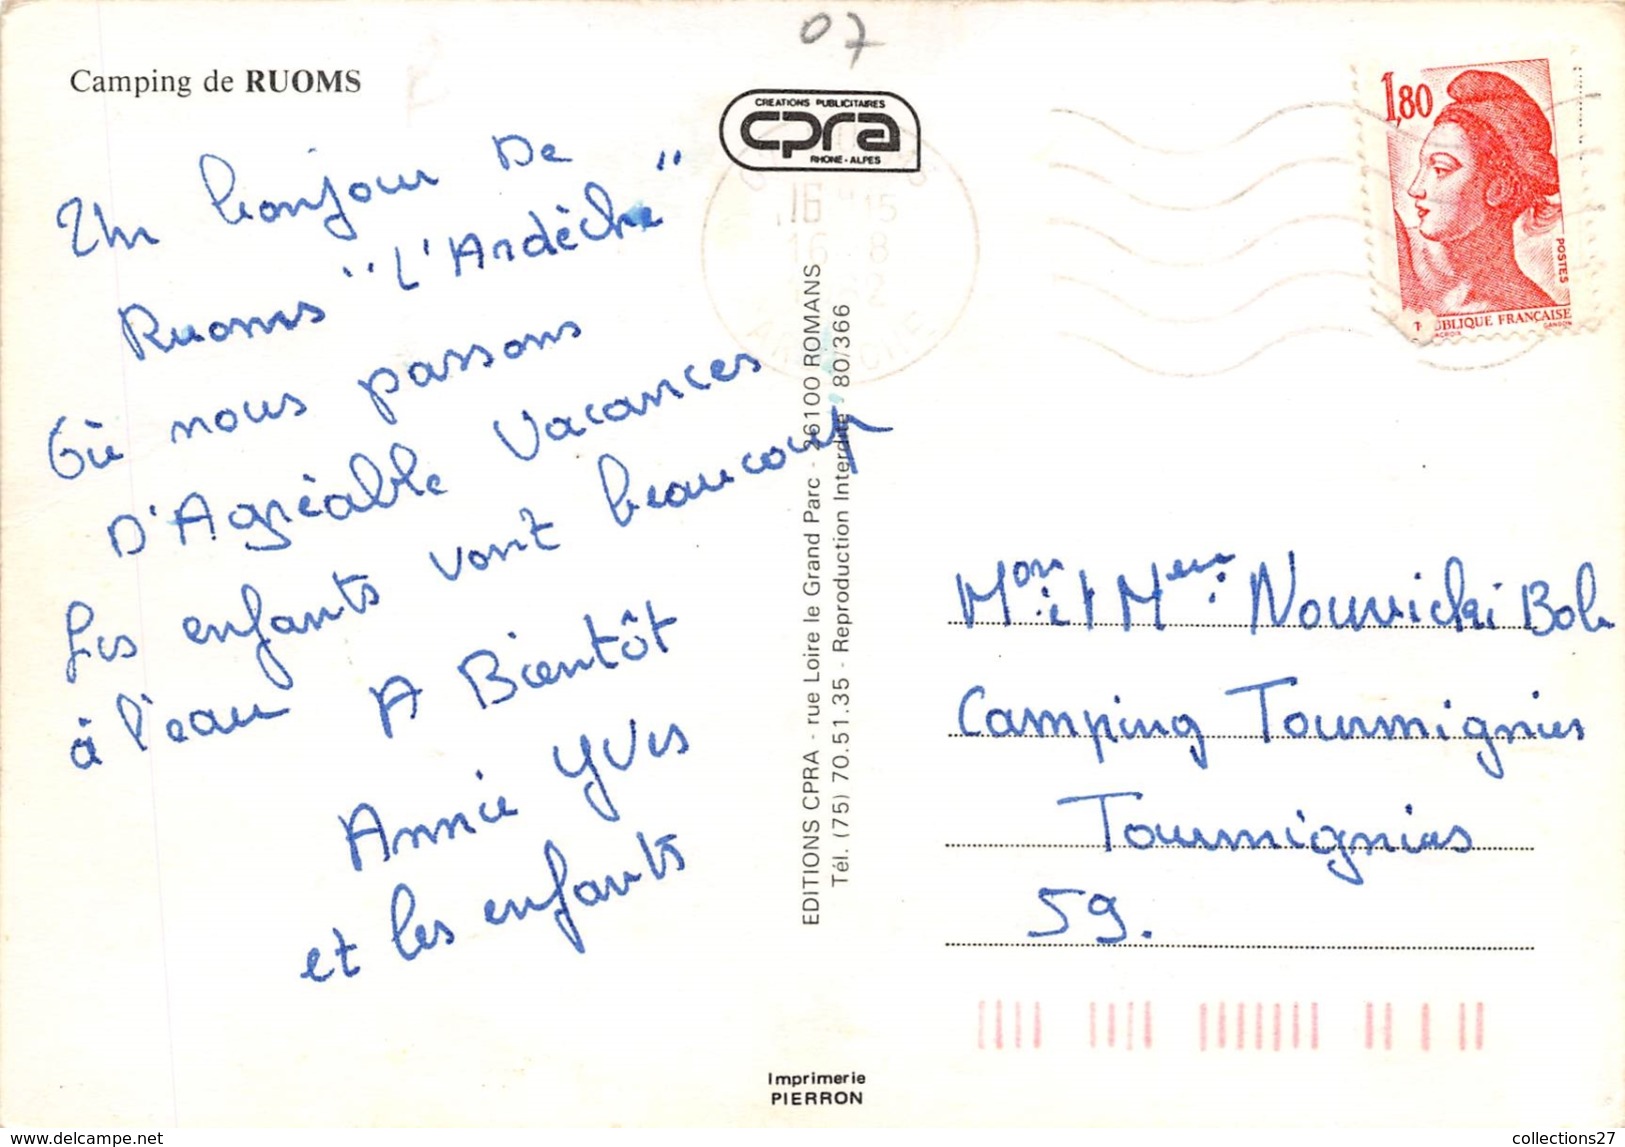 07
Camping de RUOMS
CREATIONS PUBLICITAIRES
cpra
RHONE-ALPES
Un bonjour De
Ruoms "L'Ardèche"
Où nous passons
D'Agréable Vacances
Les enfants vont beaucoup
à l'eau A Bientôt
Annie Yves
et les enfants
EDITIONS CPRA - rue Loire le Grand Parc - 26100 ROMANS
Tél. (75) 70.51.35 - Reproduction Interdite - 80/366
1,80
POSTES
RÉPUBLIQUE FRANÇAISE
GANDON
16 15
16 8
Mon et Meur Nouvicki Bob
Camping Tourmignies
Tourmignies
59.
Imprimerie
PIERRON
www.delcampe.net
collections27